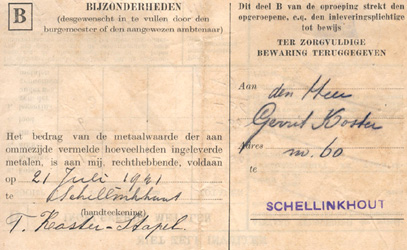 B
BIJZONDERHEDEN
(desgewenscht in te vullen door den
burgemeester of den aangewezen ambtenaar)
Het bedrag van de metaalwaarde der aan
ommezijde vermelde hoeveelheden ingeleverde
metalen, is aan mij, rechthebbende, voldaan
op 21 Juli 1941
te Schellinkhout
(handteekening)
T. Koster-Stapel.
Dit deel B van de oproeping strekt den
opgeroepene, c.q. den inleveringsplichtige
tot bewijs
TER ZORGVULDIGE
BEWARING TERUGGEGEVEN
Aan den Heer
Gerrit Koster
Adres no. 60
te
SCHELLINKHOUT